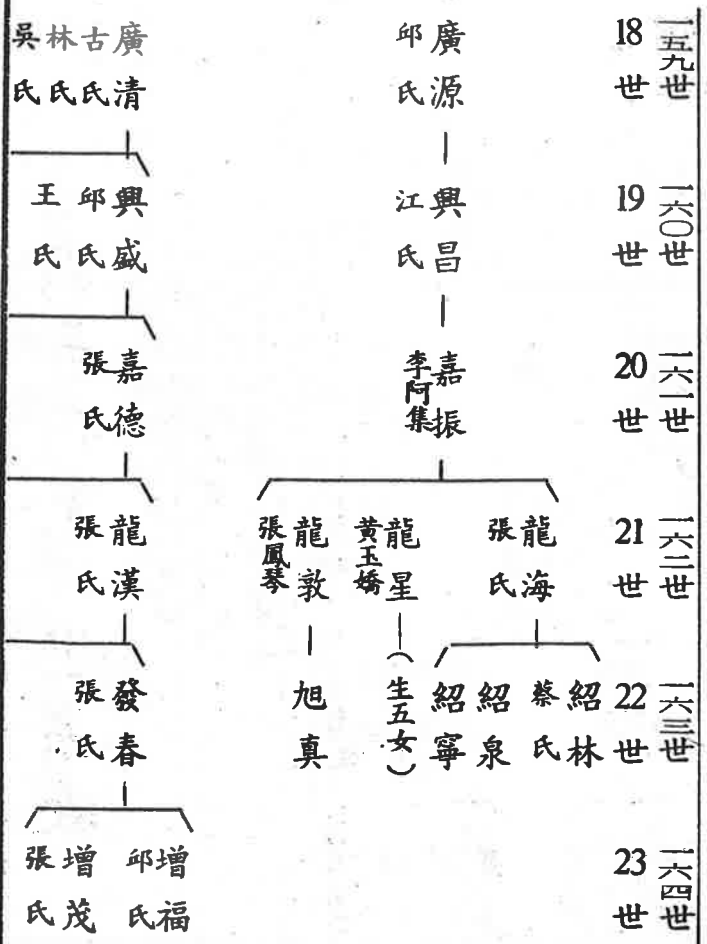 一五九世 18世 廣源 邱氏 廣清 古氏 林氏 吳氏
一六〇世 19世 興昌 江氏 興盛 邱氏 王氏
一六一世 20世 嘉振 李阿集 嘉德 張氏
一六二世 21世 龍海 張氏 龍星 黃玉嬌 龍敦 張鳳琴 龍漢 張氏
一六三世 22世 紹林 蔡氏 紹泉 紹寧 (生五女) 旭真 發春 張氏
一六四世 23世 增福 邱氏 增茂 張氏